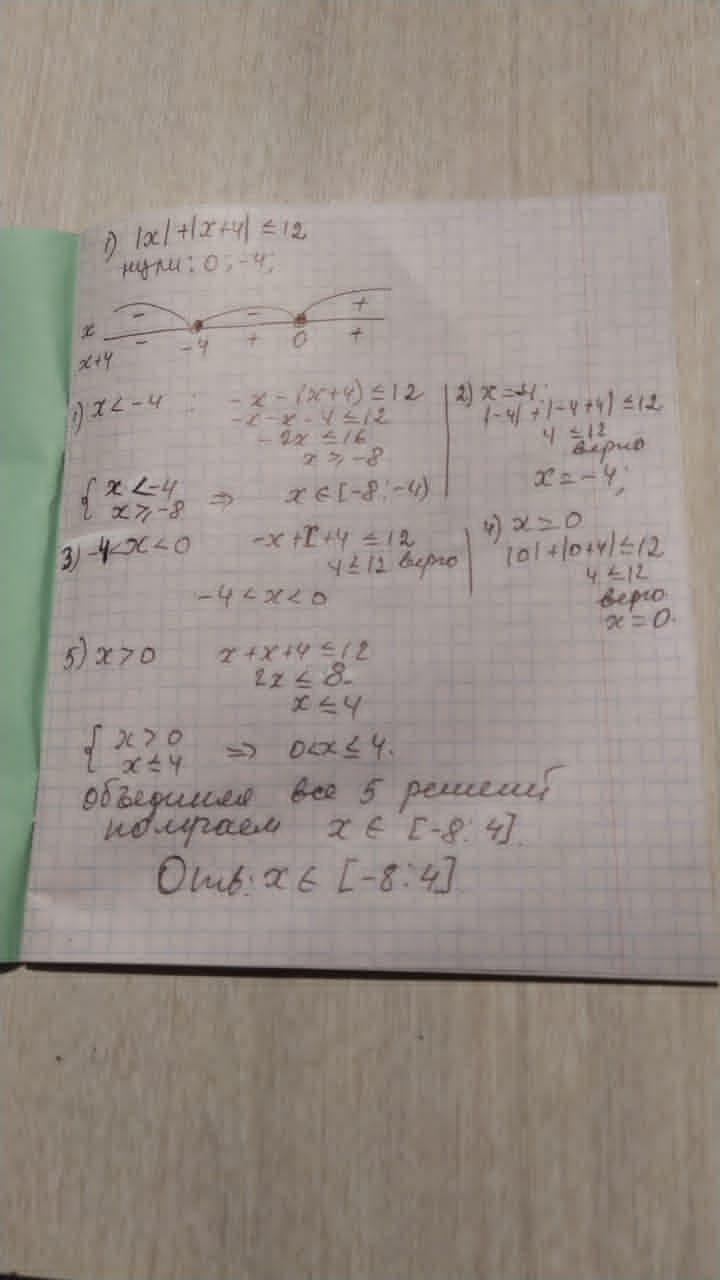 1) |x|+|x+4| ≤12
нули: 0; -4;
- - +
x
x+4 - -4 + 0 +
1) x<-4 : -x-(x+4)≤12
-x-x-4≤12
-2x≤16
x≥-8
{ x<-4
x≥-8 => x∈[-8;-4)
2) x=-4:
|-4|+|-4+4|≤12
4≤12
верно
x=-4;
3) -4<x<0 -x+x+4≤12
4≤12 верно
-4<x<0
4) x=0
|0|+|0+4|≤12
4≤12
верно
x=0.
5) x>0 x+x+4≤12
2x≤8
x≤4
{ x>0
x≤4 => 0<x≤4.
объединяя все 5 решений
получаем x∈[-8;4].
Отв: x∈[-8;4]